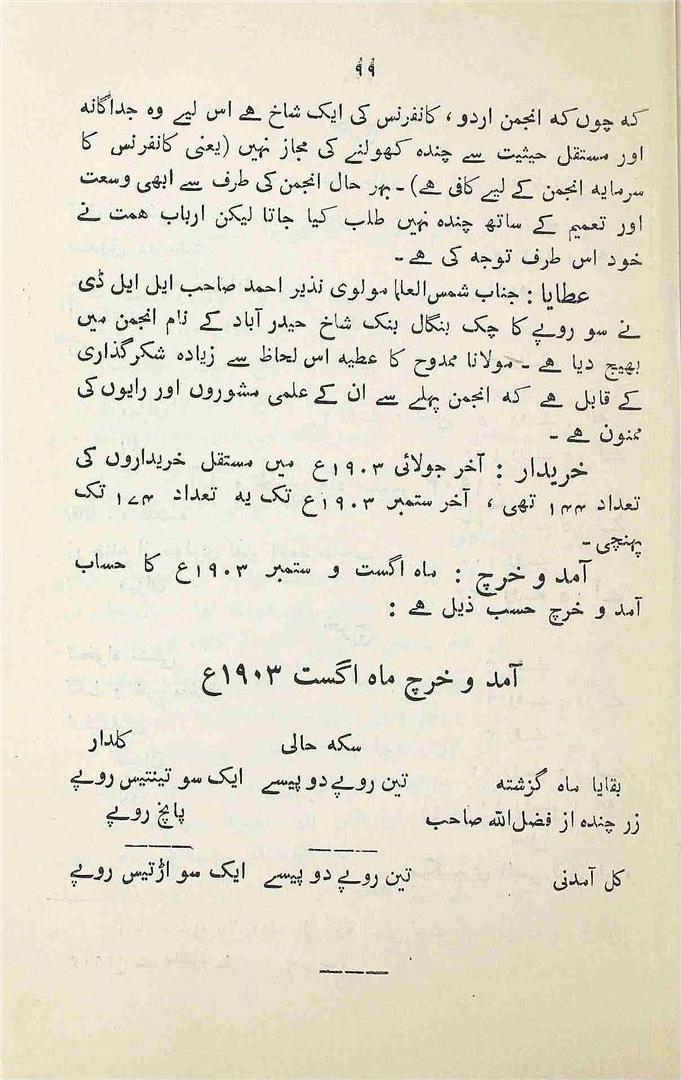 ۹۹
کہ چوں کہ انجمن اردو ، کانفرنس کی ایک شاخ ہے اس لیے وہ جداگانہ
اور مستقل حیثیت سے چندہ کھولنے کی مجاز نہیں (یعنی کانفرنس کا
سرمایہ انجمن کے لیے کافی ہے) ۔ بہر حال انجمن کی طرف سے ابھی وسعت
اور تعمیم کے ساتھ چندہ نہیں طلب کیا جاتا لیکن ارباب ہمت نے
خود اس طرف توجہ کی ہے ۔
عطایا : جناب شمس العلما مولوی نذیر احمد صاحب ایل ایل ڈی
نے سو روپے کا چک بنگال بنک شاخ حیدر آباد کے نام انجمن میں
بھیج دیا ہے ۔ مولانا ممدوح کا عطیہ اس لحاظ سے زیادہ شکرگذاری
کے قابل ہے کہ انجمن پہلے سے ان کے علمی مشوروں اور رایوں کی
ممنون ہے ۔
خریدار : آخر جولائی ۱۹۰۳ع میں مستقل خریداروں کی
تعداد ۱۴۴ تھی ، آخر ستمبر ۱۹۰۳ع تک یہ تعداد ۱۷۴ تک
پہنچی ۔
آمد و خرچ : ماہ اگست و ستمبر ۱۹۰۳ع کا حساب
آمد و خرچ حسب ذیل ہے :
آمد و خرچ ماہ اگست ۱۹۰۳ع
سکہ حالی کلدار
بقایا ماہ گزشتہ تین روپے دو پیسے ایک سو تینتیس روپے
زر چندہ از فضل اللہ صاحب پانچ روپے
کل آمدنی تین روپے دو پیسے ایک سو اڑتیس روپے